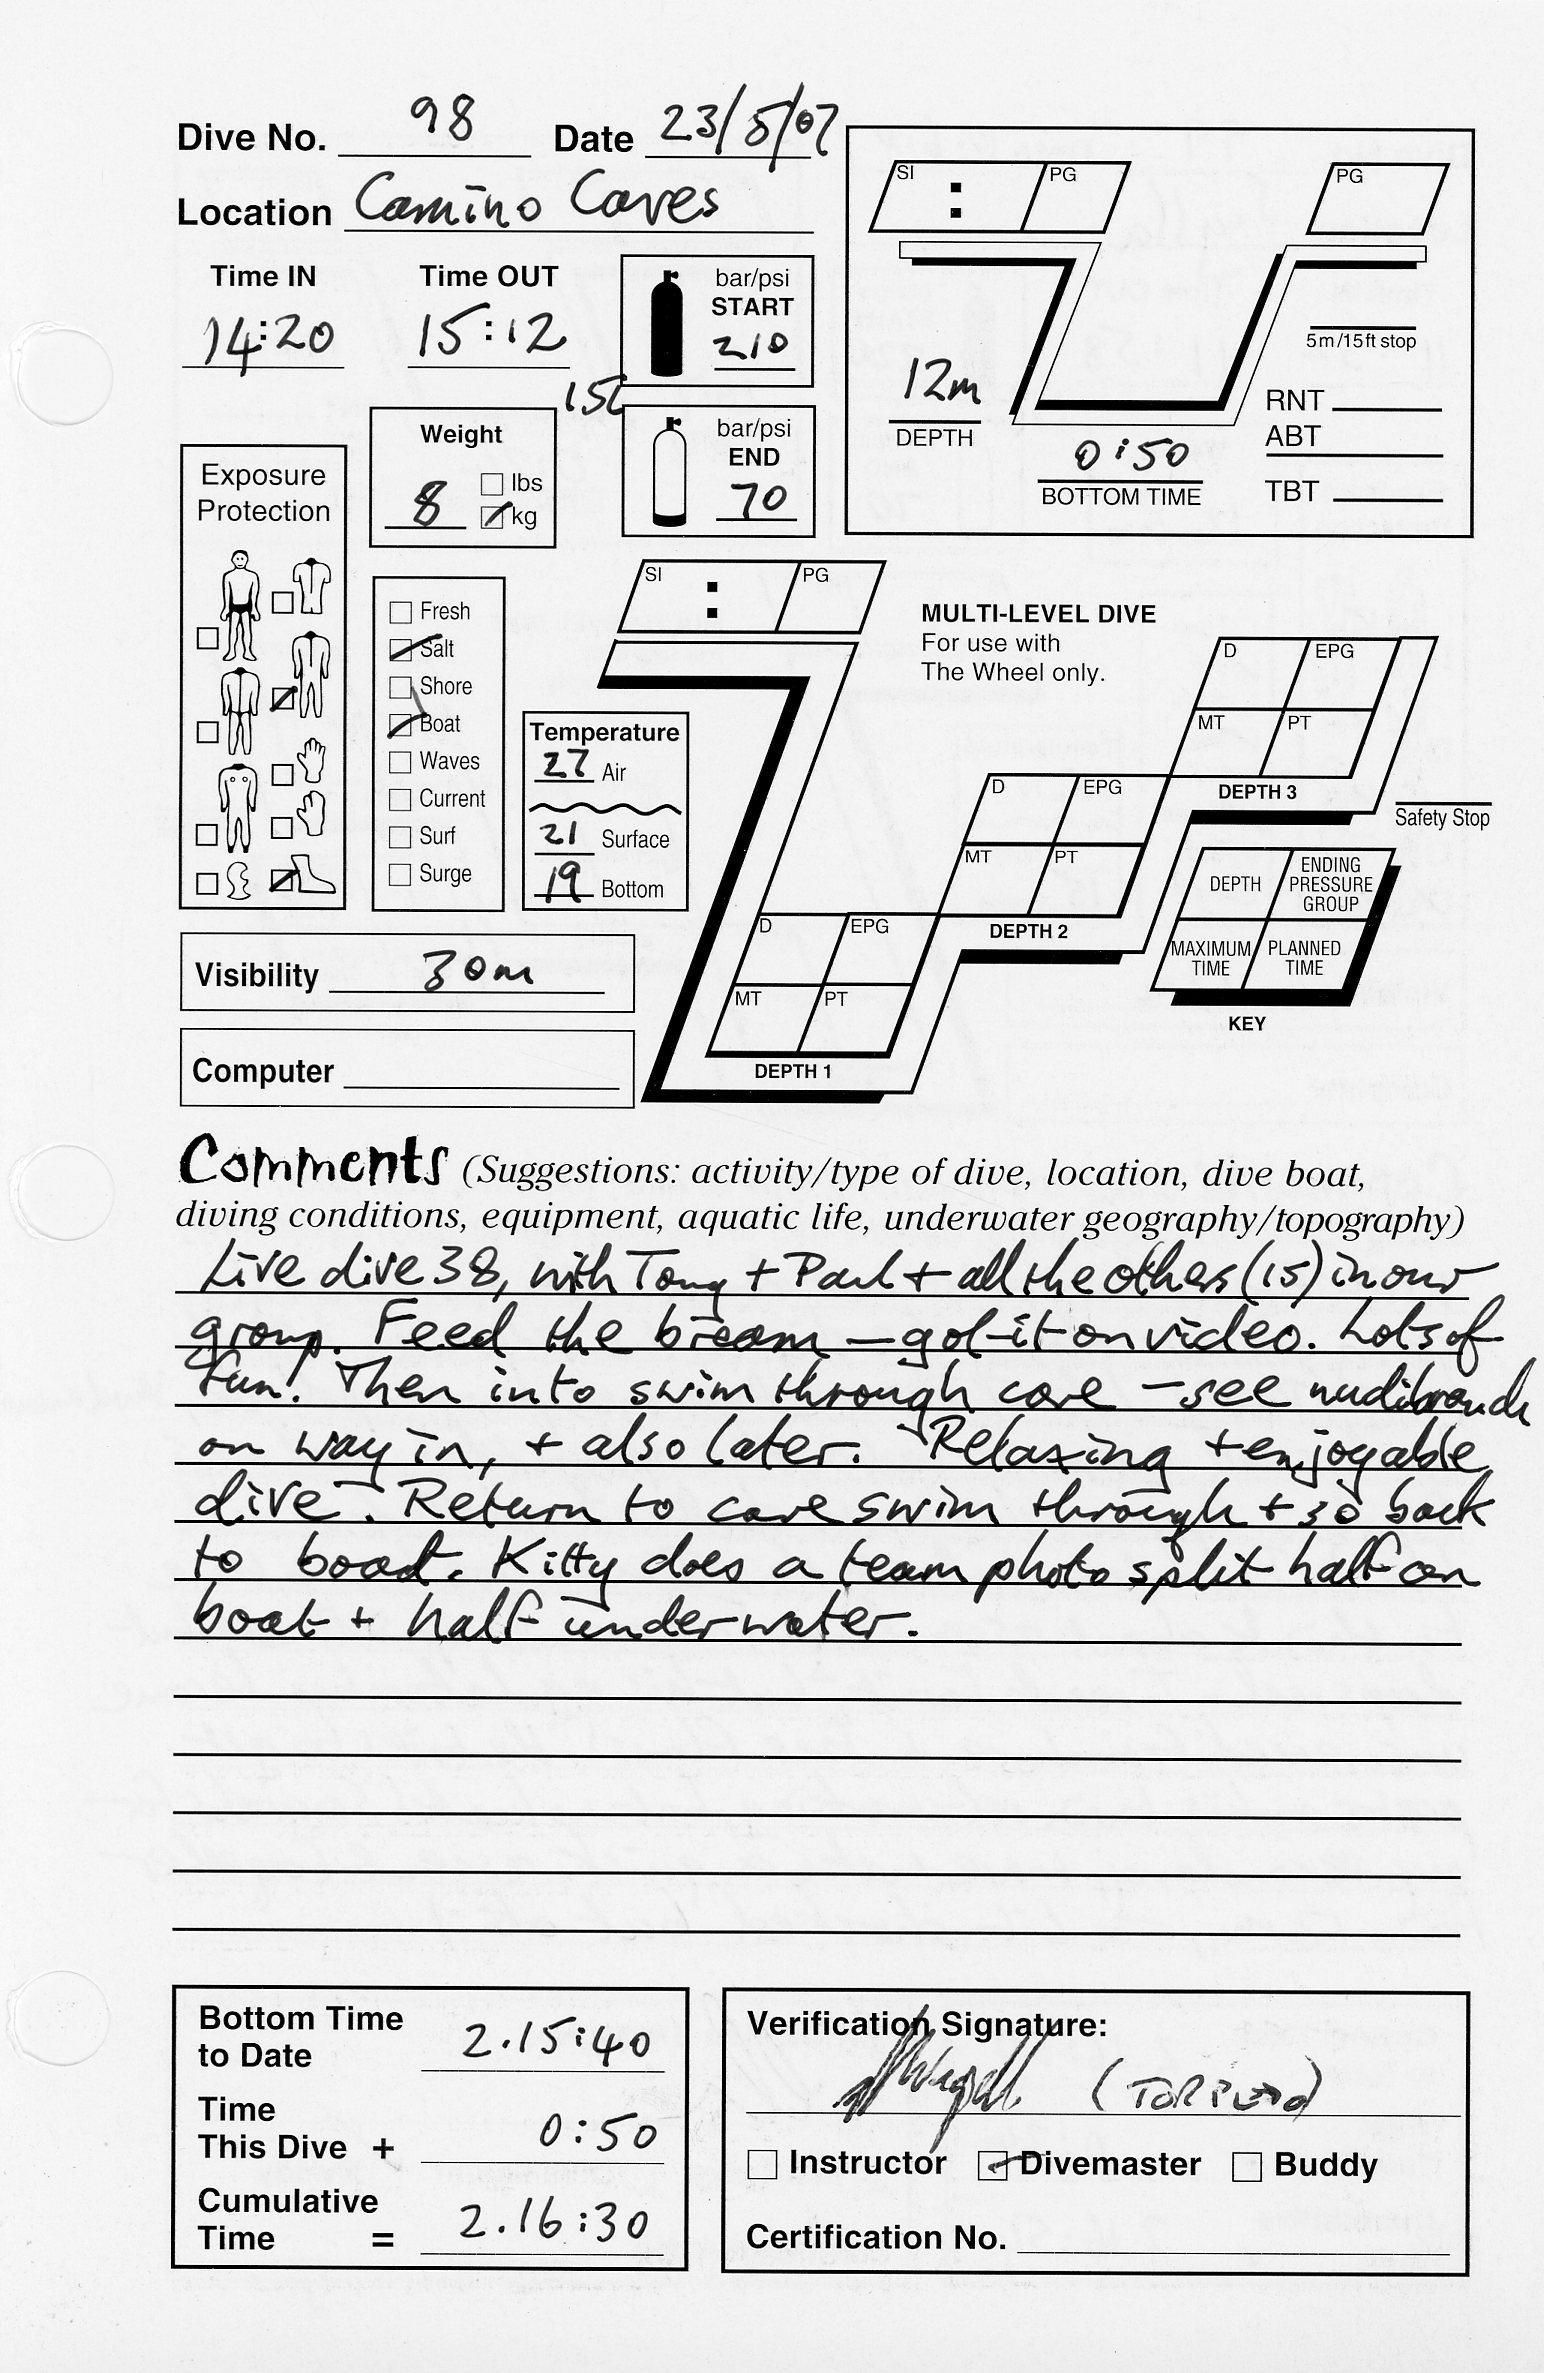 Dive No. 98 Date 23/5/07
Location Comino Caves
Time IN Time OUT
14:20 15:12
bar/psi
START
210
15L
bar/psi
END
70
Weight
8
lbs
kg
Exposure
Protection
Fresh
Salt
Shore
Boat
Waves
Current
Surf
Surge
Temperature
27 Air
21 Surface
19 Bottom
Visibility 30m
Computer
SI : PG
PG
12m
DEPTH
0:50
BOTTOM TIME
5m/15ft stop
RNT
ABT
TBT
SI : PG
MULTI-LEVEL DIVE
For use with
The Wheel only.
D EPG
MT PT
DEPTH 3
Safety Stop
D EPG
MT PT
DEPTH 2
D EPG
MT PT
DEPTH 1
DEPTH
ENDING
PRESSURE
GROUP
MAXIMUM
TIME
PLANNED
TIME
KEY
Comments (Suggestions: activity/type of dive, location, dive boat,
diving conditions, equipment, aquatic life, underwater geography/topography)
Live dive 38, with Tony + Paul + all the others (15) in our
group. Feed the bream – got it on video. Lots of
fun! Then into swim through cave – see nudibranch
on way in, + also later. Relaxing + enjoyable
dive. Return to cave swim through + so back
to boat. Kitty does a team photo split half on
boat + half underwater.
Bottom Time
to Date 2.15:40
Time
This Dive + 0:50
Cumulative
Time = 2.16:30
Verification Signature:
(TORPEDO)
Instructor Divemaster Buddy
Certification No.